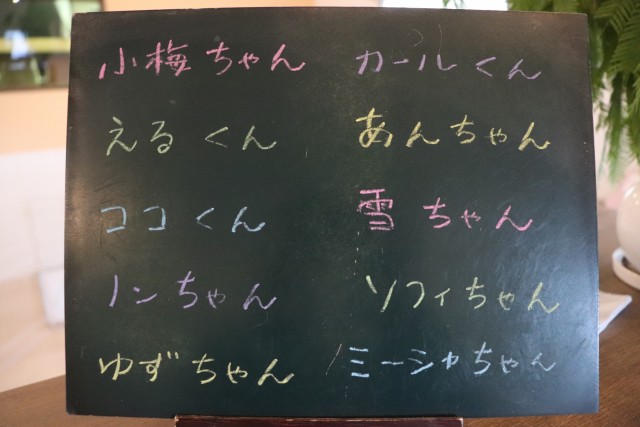 小梅ちゃん カールくん
えるくん あんちゃん
ココくん 雪ちゃん
ノンちゃん ソフィちゃん
ゆずちゃん ミーシャちゃん